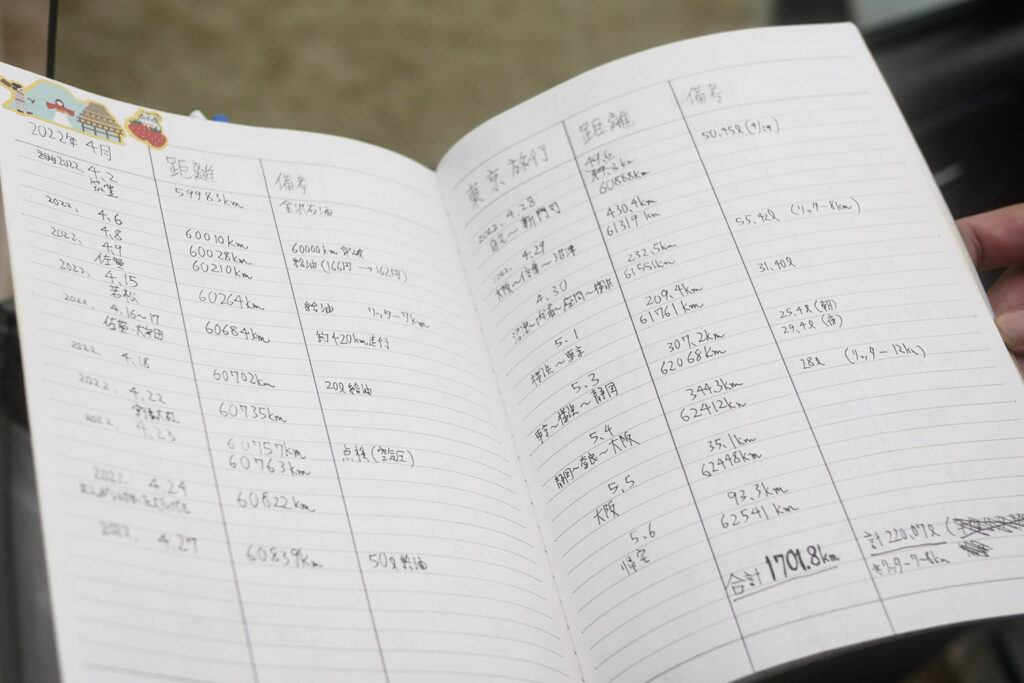 2022年 4月
距離
備考
2022. 4.2
59983km
金沢石油
2022. 4.6
4.8
60010km
60000km 突破
4.9
60028km
給油 (166円 → 162円)
佐賀
60210km
2022. 4.15
若松
60264km
給油 リッター7km
2022. 4.16~17
佐賀・大牟田
60684km
約420km走行
2022. 4.18
60702km
20ℓ給油
2022. 4.22
60735km
2022. 4.23
60757km
点検 (空気圧)
60763km
2022. 4.24
60822km
2022. 4.27
60839km
50ℓ給油
東京旅行
距離
備考
2022. 4.28
49.6
50.95ℓ (4/29)
自宅~新門司
60888km
2022. 4.29
430.4km
大阪~ ~沼津
61319km
55.42ℓ (リッター8km)
4.30
232.5km
61551km
31.40ℓ
5.1
209.4km
横浜~東京
61761km
5.3
307.2km
25.4ℓ (朝)
東京~横浜~静岡
62068km
29.4ℓ (夜)
5.4
344.3km
28ℓ (リッター12km)
静岡~奈良~大阪
62412km
5.5
35.1km
大阪
62448km
5.6
93.3km
帰宅
62541km
合計 1701.8km
計220.07ℓ
*リッター7~8km